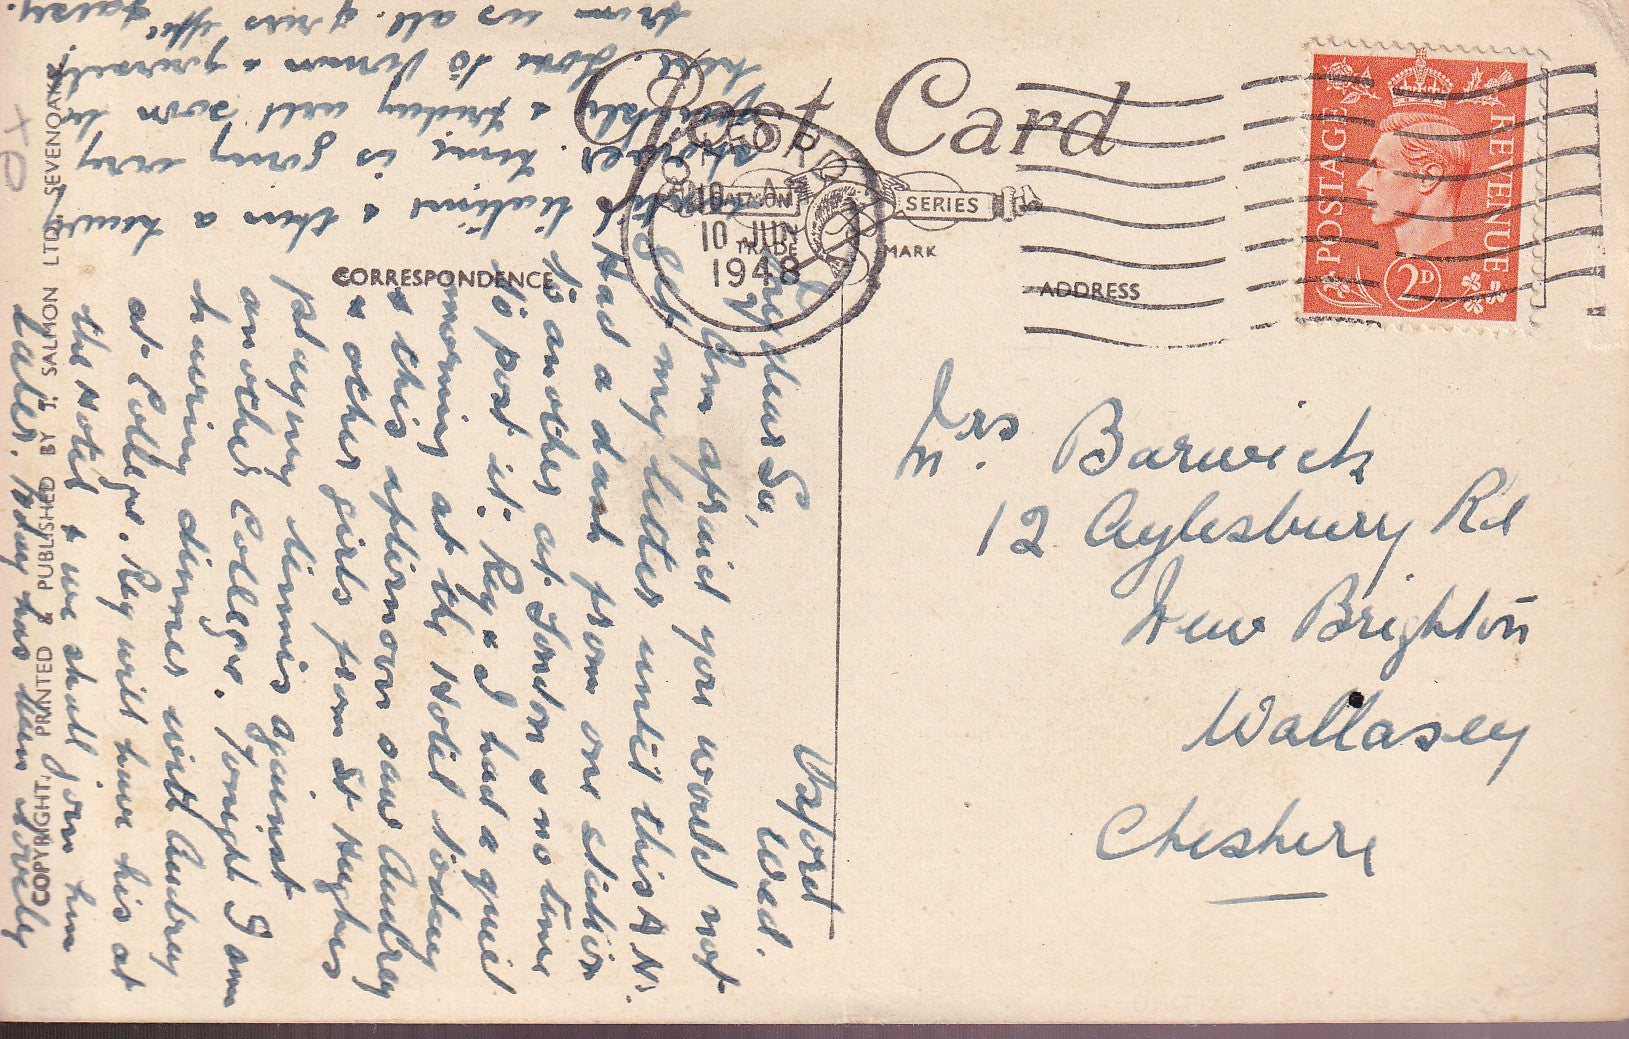 Post Card
SALMON SERIES
TRADE MARK
CORRESPONDENCE
ADDRESS
OXFORD
10
10 JUN
1948
POSTAGE REVENUE
2D
Mrs Barwick
12 Aylesbury Rd
New Brighton
Wallasey
Cheshire
Oxford
Wed.
My dear Su,
I am afraid you would not
get my letter until this A.M.
Had a dash from one station
to another at London & no time
to post it. Reg & I had a quiet
morning at the Hotel today
& this afternoon saw Audrey
& other girls from St Hughes
playing tennis against
another College. Tonight I am
having dinner with Audrey
at College. Reg will have his at
the Hotel & we shall join him
later. Today has been lovely
then a heavy
time is going very
quickly & Friday will soon be
here. Love to Vernon & yourself
from us all.
COPYRIGHT. PRINTED & PUBLISHED BY J. SALMON LTD. SEVENOAKS.